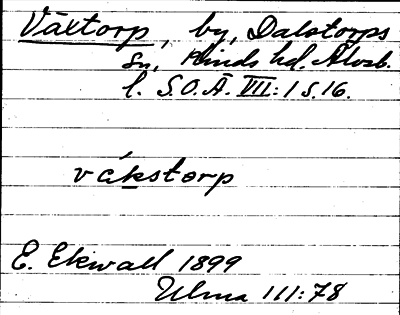 Växtorp, by, Dalstorps
sn, Kinds hd. Älvsb.
l. S.O.Ä. VII:1 s.16.
vákstorp
E. Ekwall 1899
Ulma 111:78